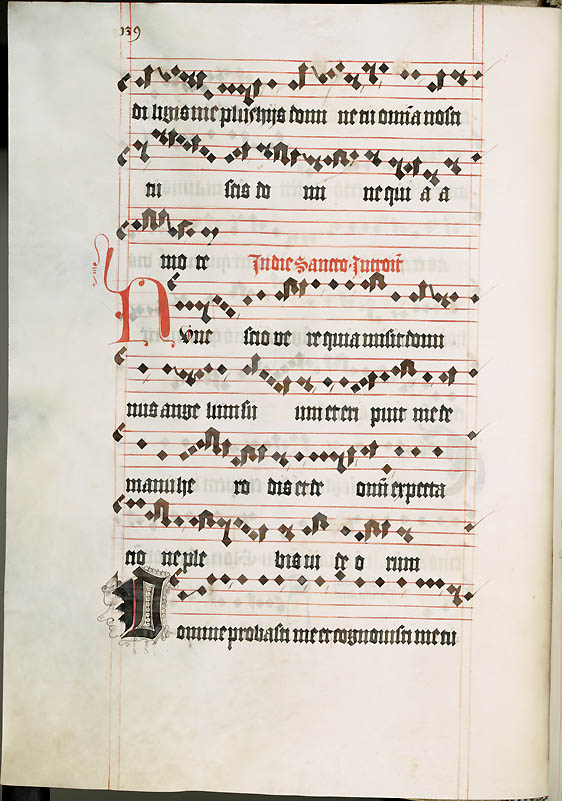 139
di ligis me plus hijs domi ne tu om̄a nosti
tu scis do mi ne qui a a
mo te In die Sancto Introit̄
Nunc scio ve re quia misit domi
nus ange lum su um et eri puit me de
manu he ro dis et de omī expecta
tio ne ple bis iu de o rum
Domine probasti me et cognouisti me tu